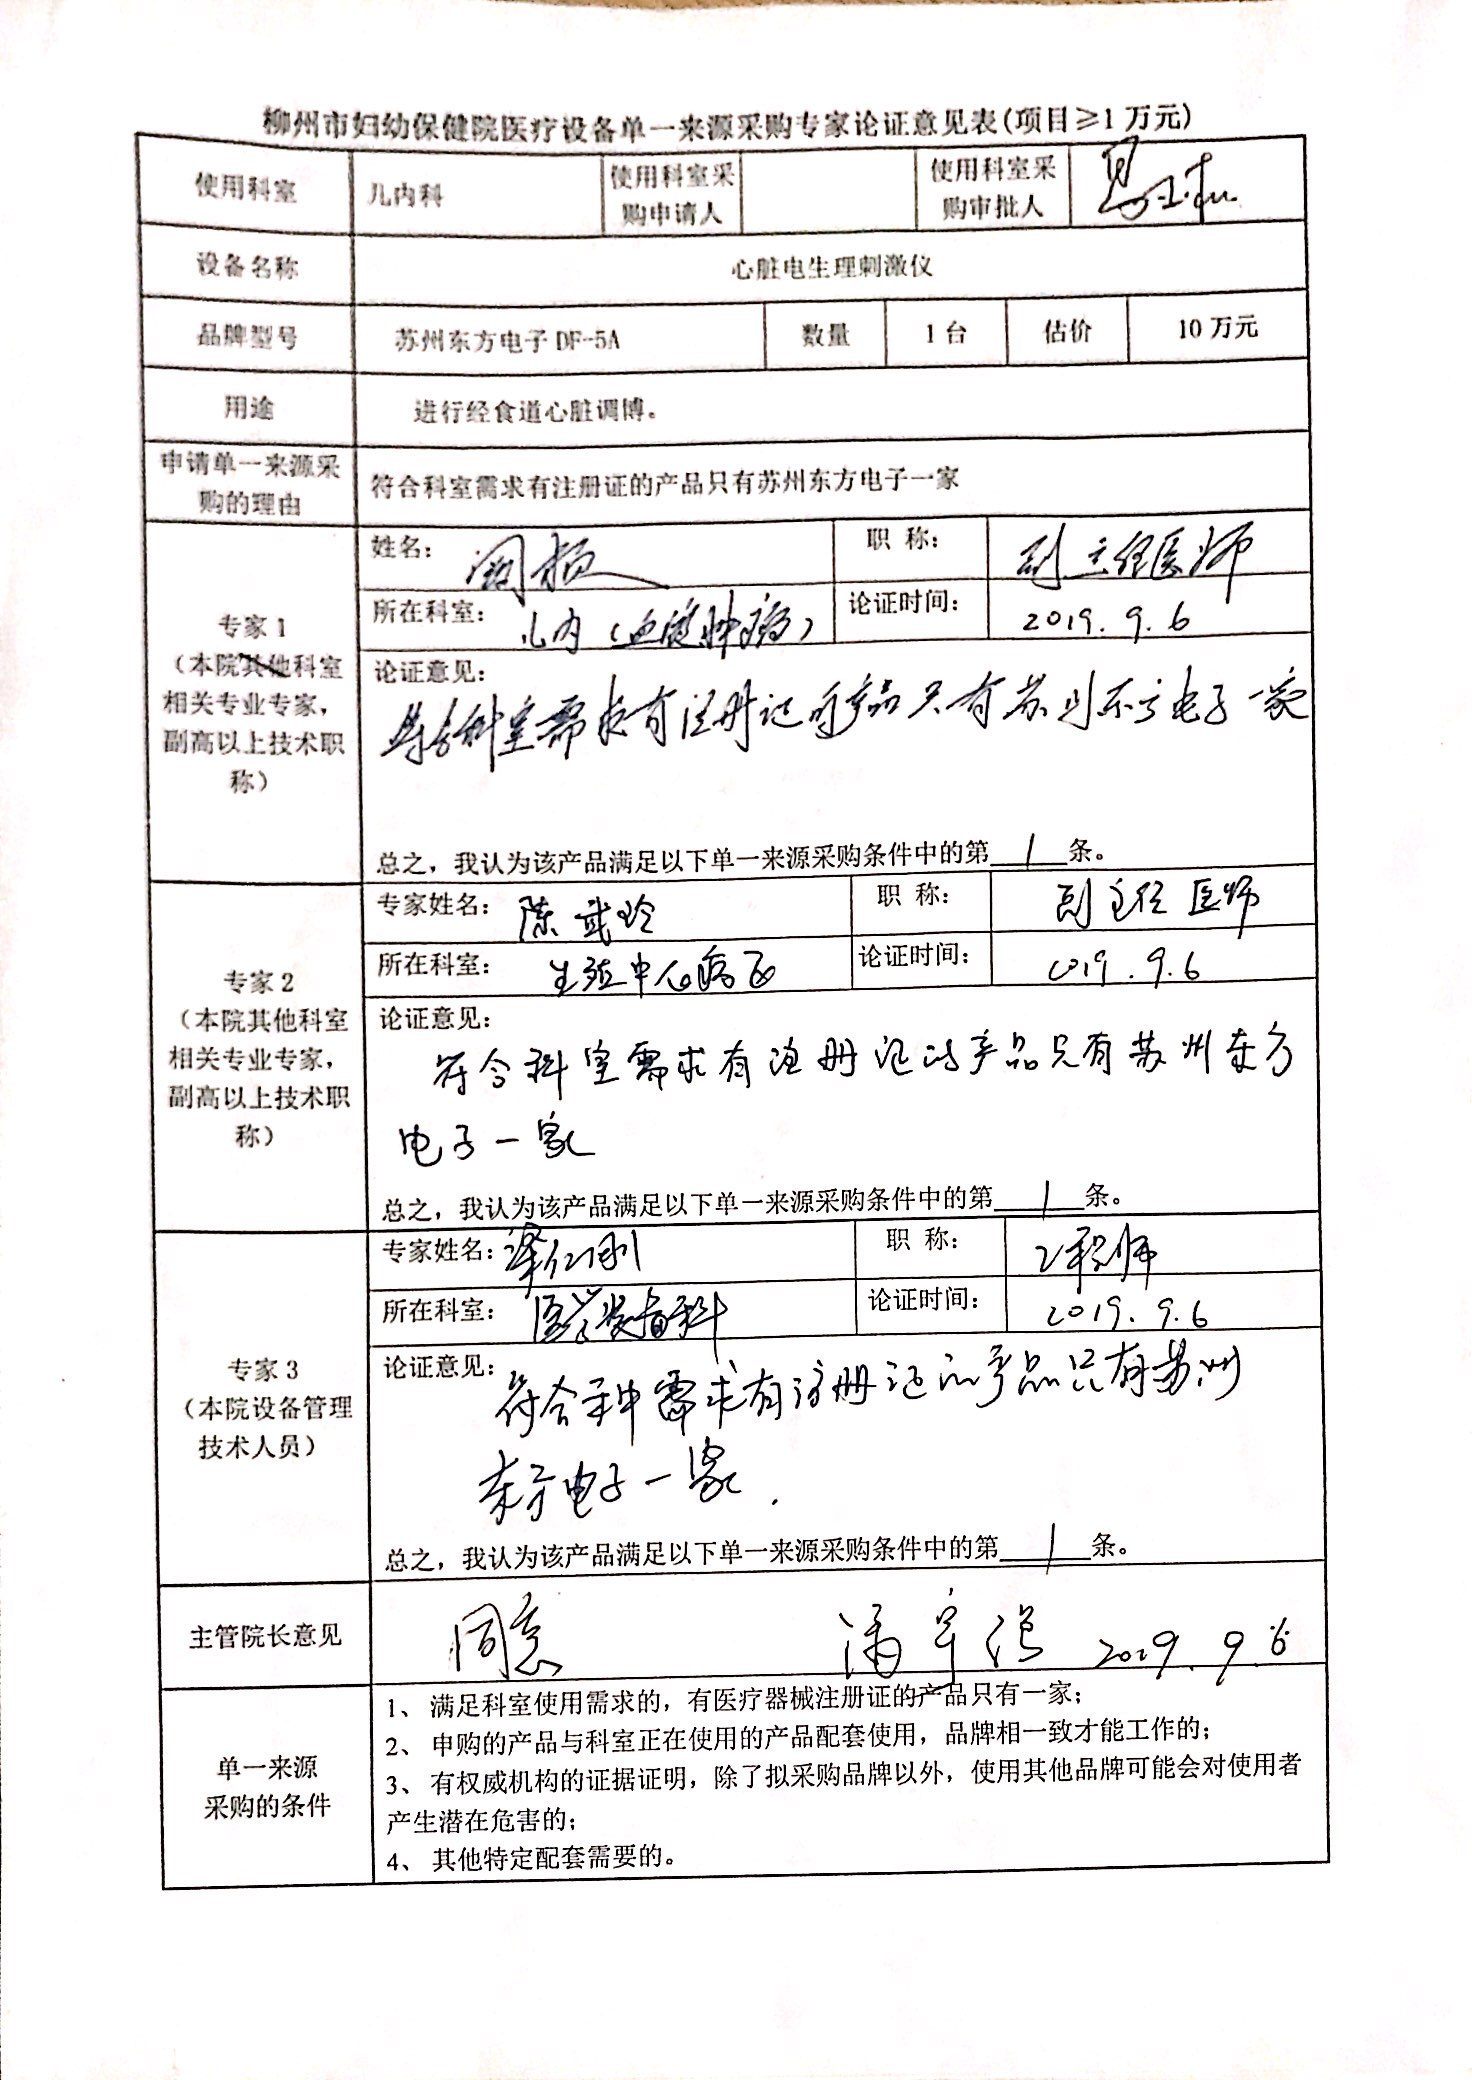 柳州市妇幼保健院医疗设备单一来源采购专家论证意见表(项目≥1万元)
使用科室 儿内科 使用科室采购申请人 使用科室采购审批人
设备名称 心脏电生理刺激仪
品牌型号 苏州东方电子 DF-5A 数量 1台 估价 10万元
用途 进行经食道心脏调博。
申请单一来源采
购的理由
符合科室需求有注册证的产品只有苏州东方电子一家
专家1
（本院其他科室
相关专业专家，
副高以上技术职
称）
姓名： 职 称： 副主任医师
所在科室： 儿内（血液肿瘤） 论证时间： 2019.9.6
论证意见：
符合科室需求有注册证的产品只有苏州东方电子一家
总之，我认为该产品满足以下单一来源采购条件中的第1条。
专家2
（本院其他科室
相关专业专家，
副高以上技术职
称）
专家姓名： 陈武玲 职 称： 副主任医师
所在科室： 生殖中心病区 论证时间： 2019.9.6
论证意见：
符合科室需求有注册证的产品只有苏州东方
电子一家
总之，我认为该产品满足以下单一来源采购条件中的第1条。
专家3
（本院设备管理
技术人员）
专家姓名： 职 称： 工程师
所在科室： 医学装备科 论证时间： 2019.9.6
论证意见：
符合科室需求有注册证的产品只有苏州
东方电子一家.
总之，我认为该产品满足以下单一来源采购条件中的第1条。
主管院长意见 同意 2019.9.6
单一来源
采购的条件
1、 满足科室使用需求的，有医疗器械注册证的产品只有一家；
2、 申购的产品与科室正在使用的产品配套使用，品牌相一致才能工作的；
3、 有权威机构的证据证明，除了拟采购品牌以外，使用其他品牌可能会对使用者
产生潜在危害的；
4、 其他特定配套需要的。